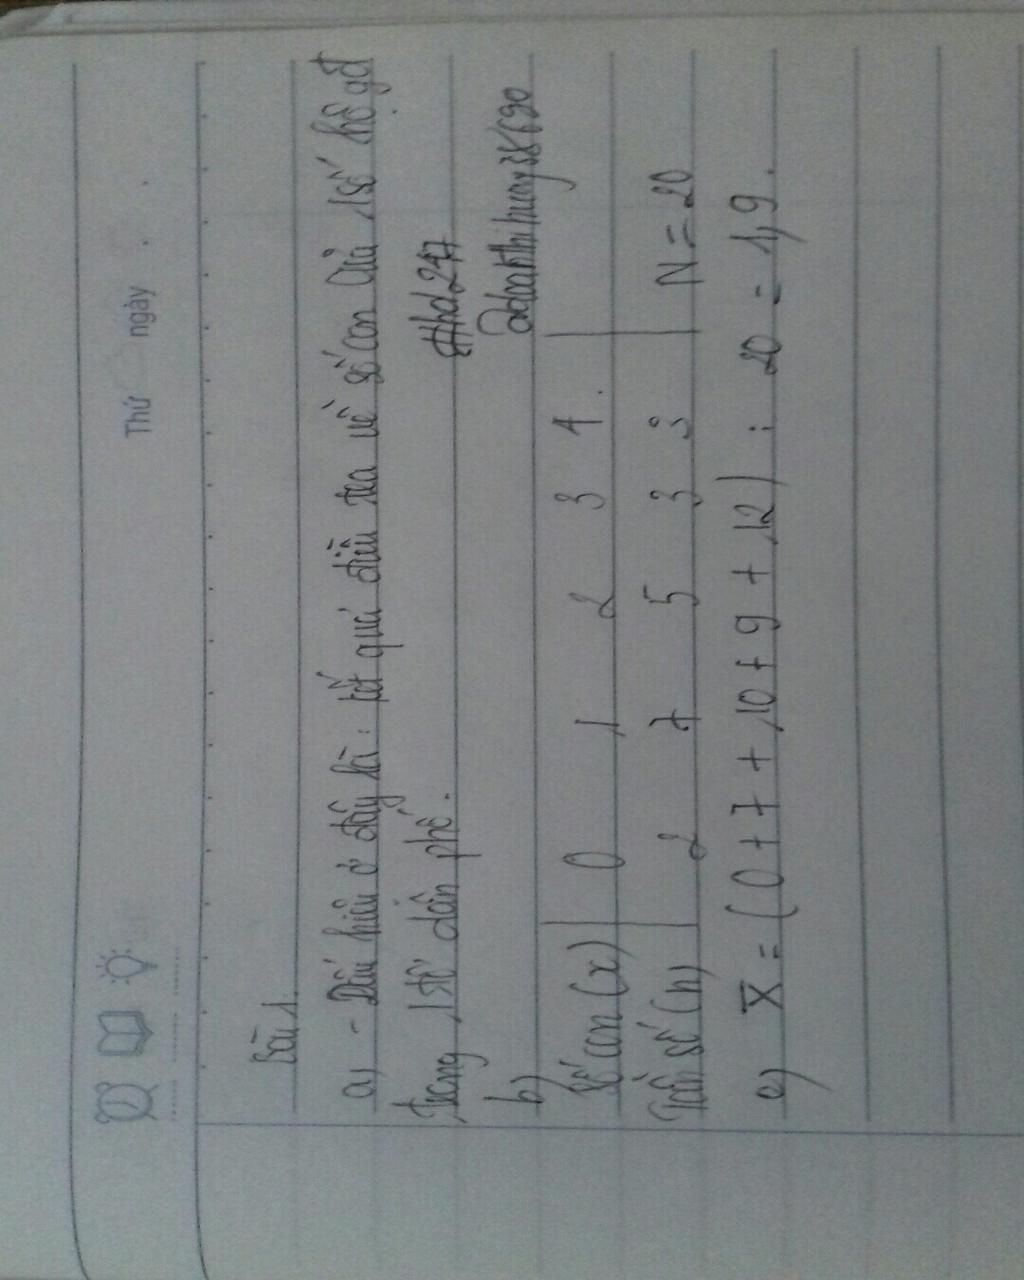 Thứ ngày
Bài 1.
a) - Dấu hiệu ở đây là: kết quả điều tra về số con của 1 số hộ gđ
trong 1 tổ dân phố. Hhd247
b) @doanthihuong
Số con (x) 0 1 2 3 4.
Tần số (n) 2 7 5 3 3 N = 20
c) X̄ = (0 + 7 + 10 + 9 + 12) : 20 = 1,9.